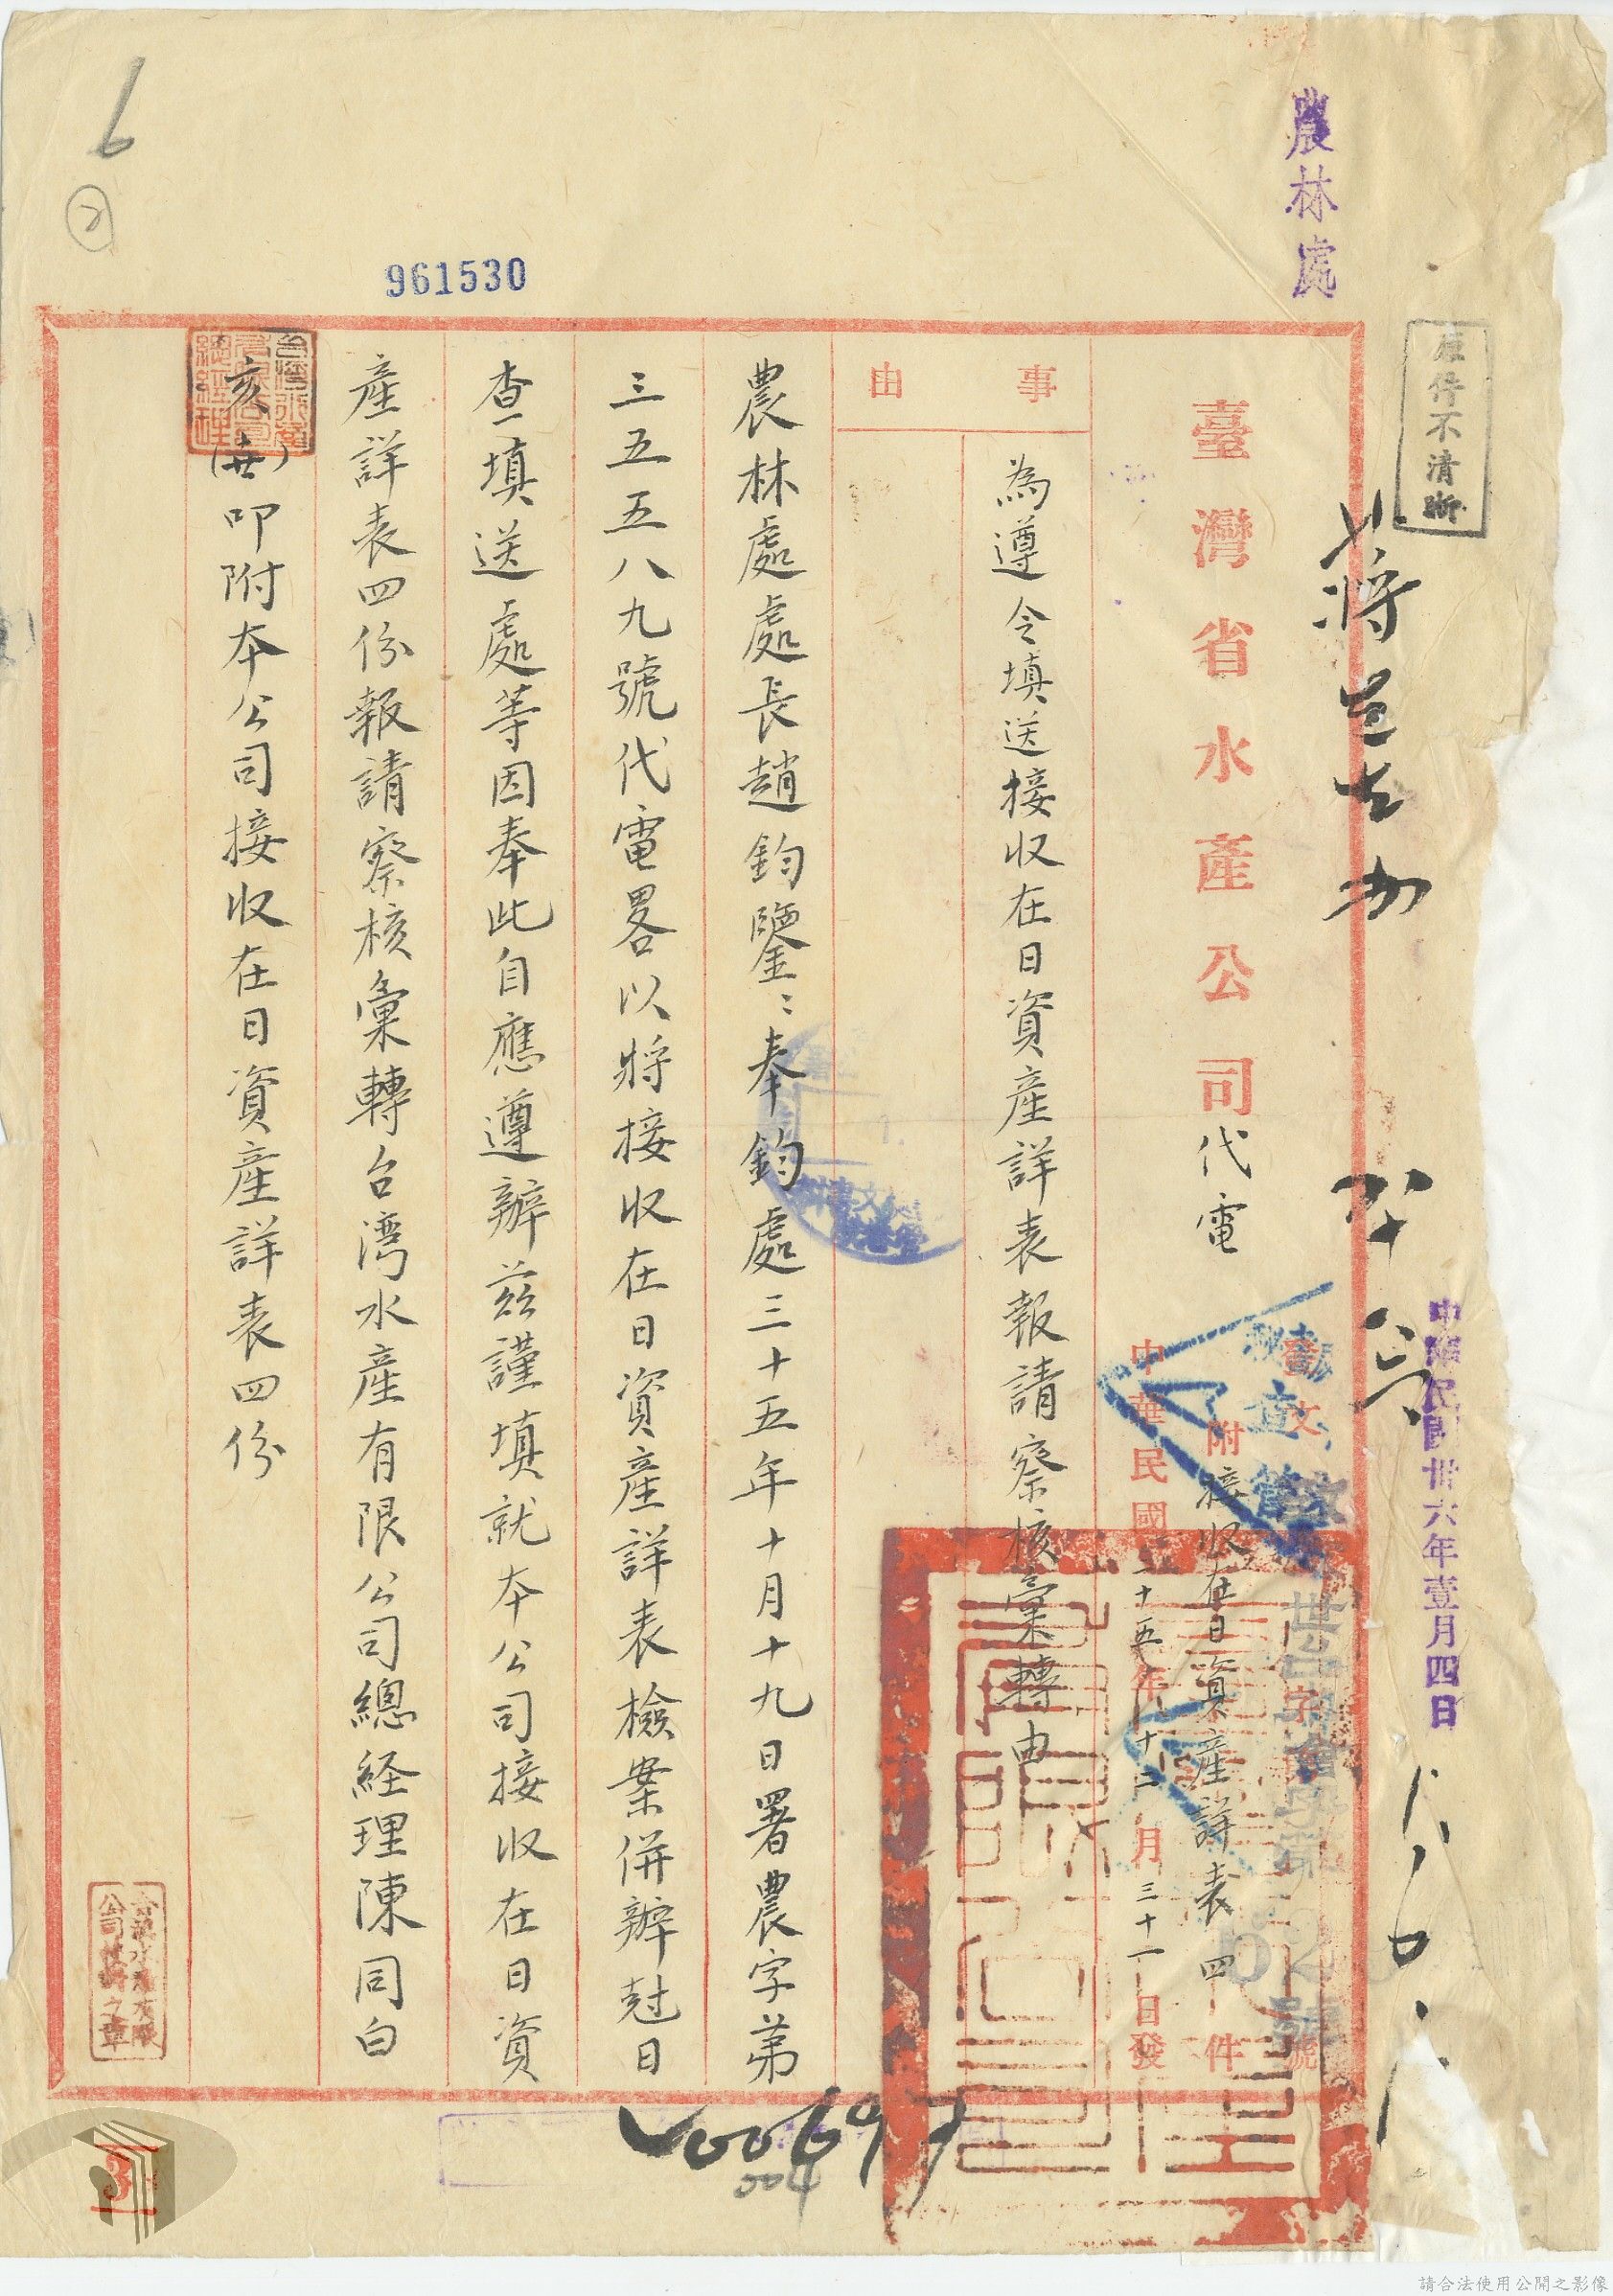 農林處
原件不清晰
中華民國卅六年壹月四日
臺灣省水產公司代電
附接收在日資產詳表四件
中華民國三十五年十二月三十一日發
事由
為遵令填送接收在日資產詳表報請察核彙轉由
農林處處長趙鈞鑒：奉鈞處三十五年十月十九日署農字第
三五五八九號代電畧以將接收在日資產詳表檢案併辦尅日
查填送處等因奉此自應遵辦茲謹填就本公司接收在日資
產詳表四份報請察核彙轉台湾水產有限公司總経理陳同白
亥(世)叩附本公司接收在日資產詳表四份
961530
6
2
00697
004
3
請合法使用公開之影像